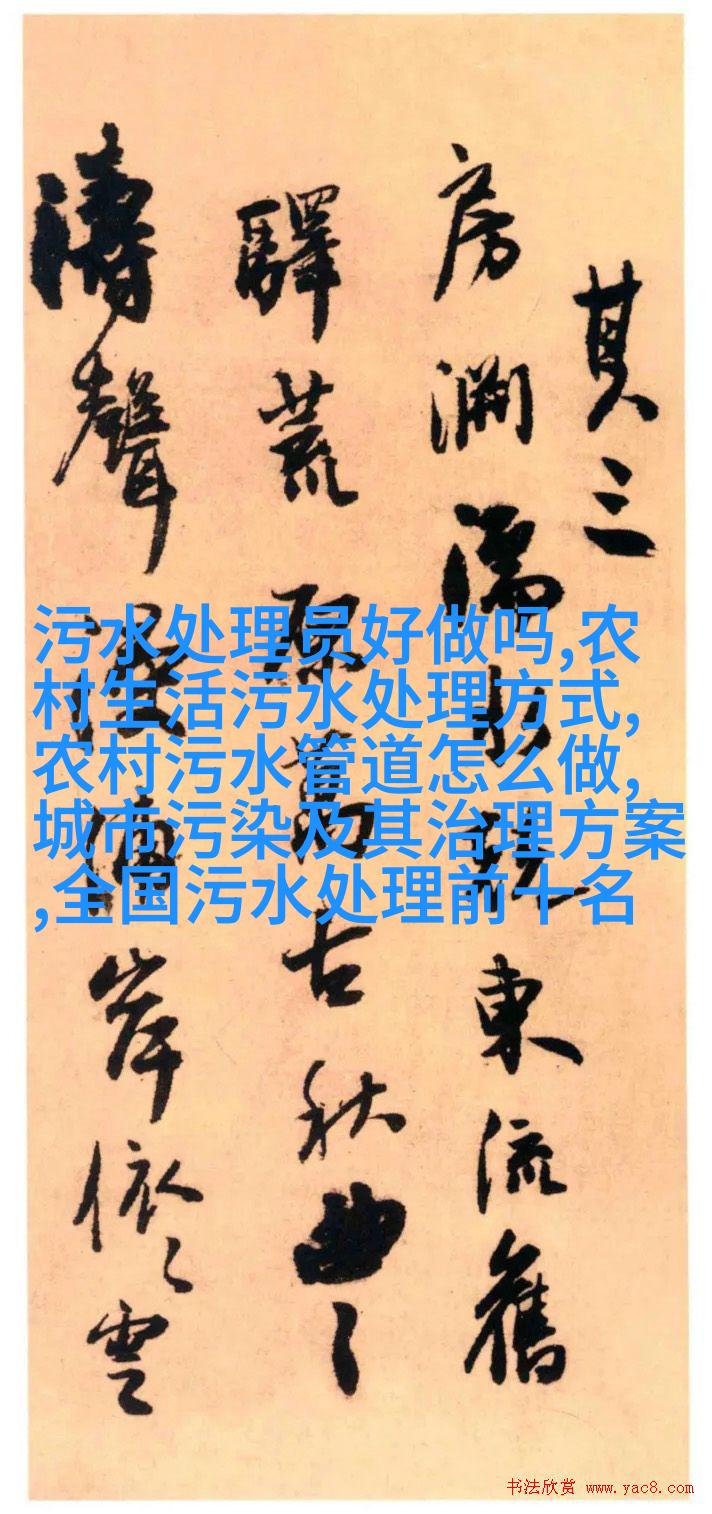 其三
房 濡水 東流舊
驛荒原萬古秋曲〻
濤聲 岸依〻雲
污水处理员好做吗,农
村生活污水处理方式,
农村污水管道怎么做,
城市污染及其治理方案
,全国污水处理前十名
书法欣赏 www.yac8.com